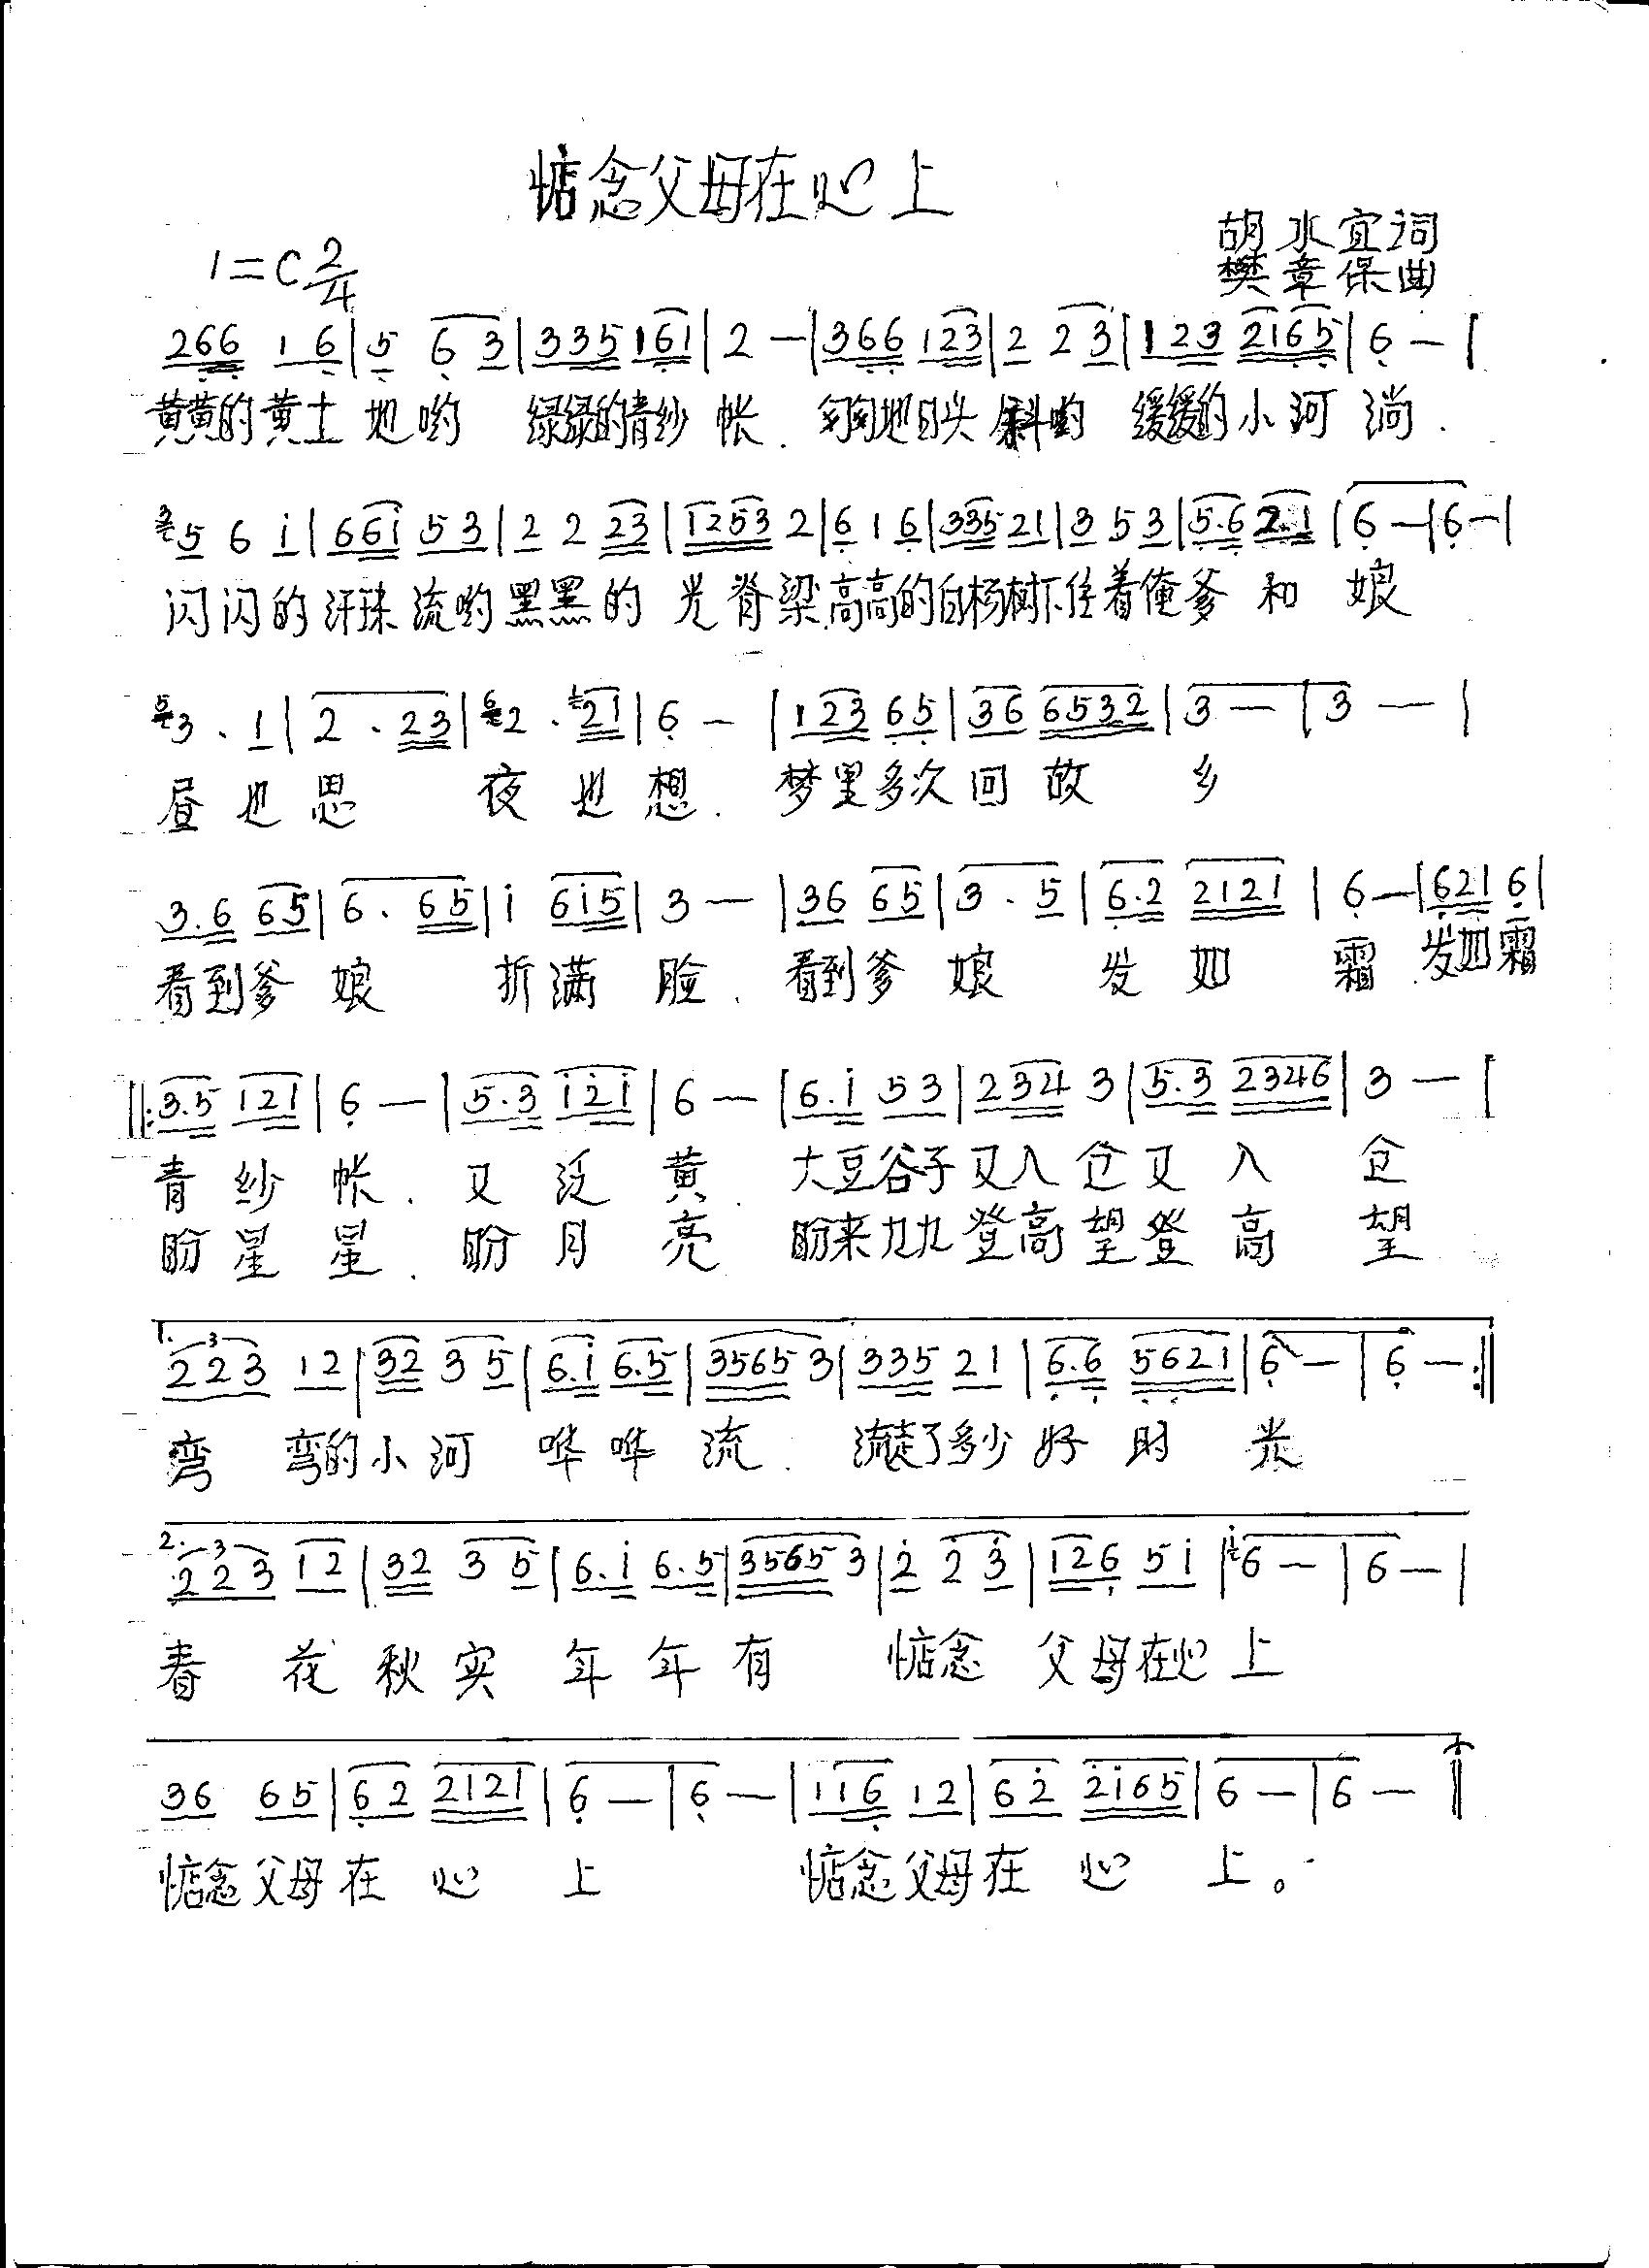 惦念父母在心上
胡水宜词
1=C 2/4
樊章保曲
266 16|5 63|335 161|2 -|366 123|2 23|123 2165|6 -|
黄黄的黄土地哟 绿绿的青纱帐. 匆匆地日头斜哟 缓缓的小河淌.
5 6 i|66i 53|2 2 23|1253 2|6 1 6|335 21|3 5 3|5.6 2.1|6 -|6 -|
闪闪的汗珠流哟黑黑的光脊梁.高高的白杨树下住着俺爹和娘
3 . 1|2 . 23|2 . 21|6 -|123 65|36 6532|3 -|3 -|
昼也思 夜也想. 梦里多次回故乡
3.6 65|6 . 65|i 6i5|3 -|36 65|3 . 5|6.2 2121|6 -|621 6|
看到爹娘 折满脸. 看到爹娘发如霜.发如霜
‖:3.5 121|6 -|5.3 i2i|6 -|6.i 53|234 3|5.3 2346|3 -|
青纱帐. 又泛黄. 大豆谷子又入仓又入仓
盼星星. 盼月亮 盼来九九登高望登高望
1. 223 12|32 3 5|6.i 6.5|3565 3|335 21|6.6 5621|6 -|6 -:‖
弯弯的小河哗哗流. 流走了多少好时光
2. 223 12|32 3 5|6.i 6.5|3565 3|2 2 3|126 5i|6 -|6 -|
春花秋实年年有 惦念父母在心上
36 65|62 2121|6 -|6 -|116 12|62 2i65|6 -|6 -‖
惦念父母在心上 惦念父母在心上。